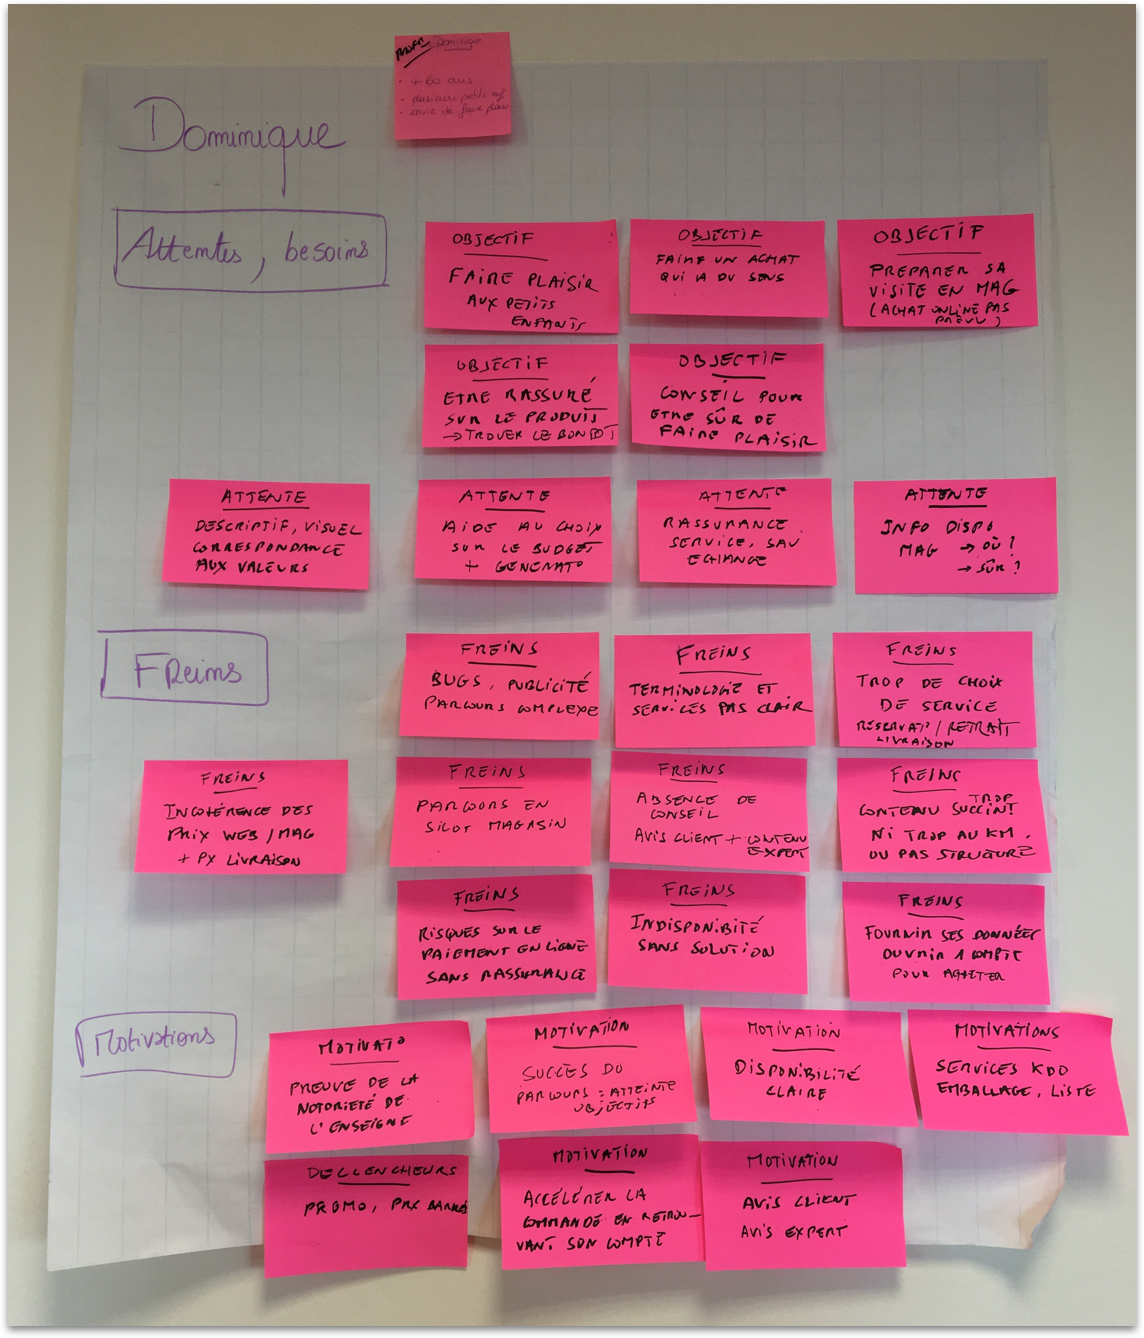 Dominique
+ 60 ans
plusieurs petits enf
envie de faire plaisir
Dominique
Attentes, besoins
OBJECTIF
FAIRE PLAISIR
AUX PETITS
ENFANTS
OBJECTIF
FAIRE UN ACHAT
QUI A DU SENS
OBJECTIF
PREPARER SA
VISITE EN MAG
(ACHAT ONLINE PAS
PRÉVU)
OBJECTIF
ETRE RASSURÉ
SUR LE PRODUIT
→ TROUVER LE BON PDT
OBJECTIF
CONSEIL POUR
ETRE SÛR DE
FAIRE PLAISIR
ATTENTE
DESCRIPTIF, VISUEL
CORRESPONDANCE
AUX VALEURS
ATTENTE
AIDE AU CHOIX
SUR LE BUDGET
+ GENERATO
ATTENTE
RASSURANCE
SERVICE, SAV
ECHANGE
ATTENTE
INFO DISPO
MAG → OÙ ?
→ SÛR ?
Freins
FREINS
BUGS, PUBLICITÉ
PARCOURS COMPLEXE
FREINS
TERMINOLOGIE ET
SERVICES PAS CLAIR
FREINS
TROP DE CHOIX
DE SERVICE
RÉSERVAT°/RETRAIT
LIVRAISON
FREINS
INCOHÉRENCE DES
PRIX WEB/MAG
+ PX LIVRAISON
FREINS
PARCOURS EN
SILOT MAGASIN
FREINS
ABSENCE DE
CONSEIL
AVIS CLIENT + CONTENU
EXPERT
FREINS
TROP
CONTENU SUCCINT
NI TROP AU KM.
OU PAS STRUCTURÉ
FREINS
RISQUES SUR LE
PAIEMENT EN LIGNE
SANS RASSURANCE
FREINS
INDISPONIBILITÉ
SANS SOLUTION
FREINS
FOURNIR SES DONNÉES
OUVRIR 1 COMPTE
POUR ACHETER
Motivations
MOTIVAT°
PREUVE DE LA
NOTORIETÉ DE
L'ENSEIGNE
MOTIVATION
SUCCÈS DU
PARCOURS = ATTEINTE
OBJECTIFS
MOTIVATION
DISPONIBILITÉ
CLAIRE
MOTIVATIONS
SERVICES KDO
EMBALLAGE, LISTE
DECLENCHEURS
PROMO, PRX BARRÉS
MOTIVATION
ACCÉLÉRER LA
COMMANDE EN RETROU-
VANT SON COMPTE
MOTIVATION
AVIS CLIENT
AVIS EXPERT